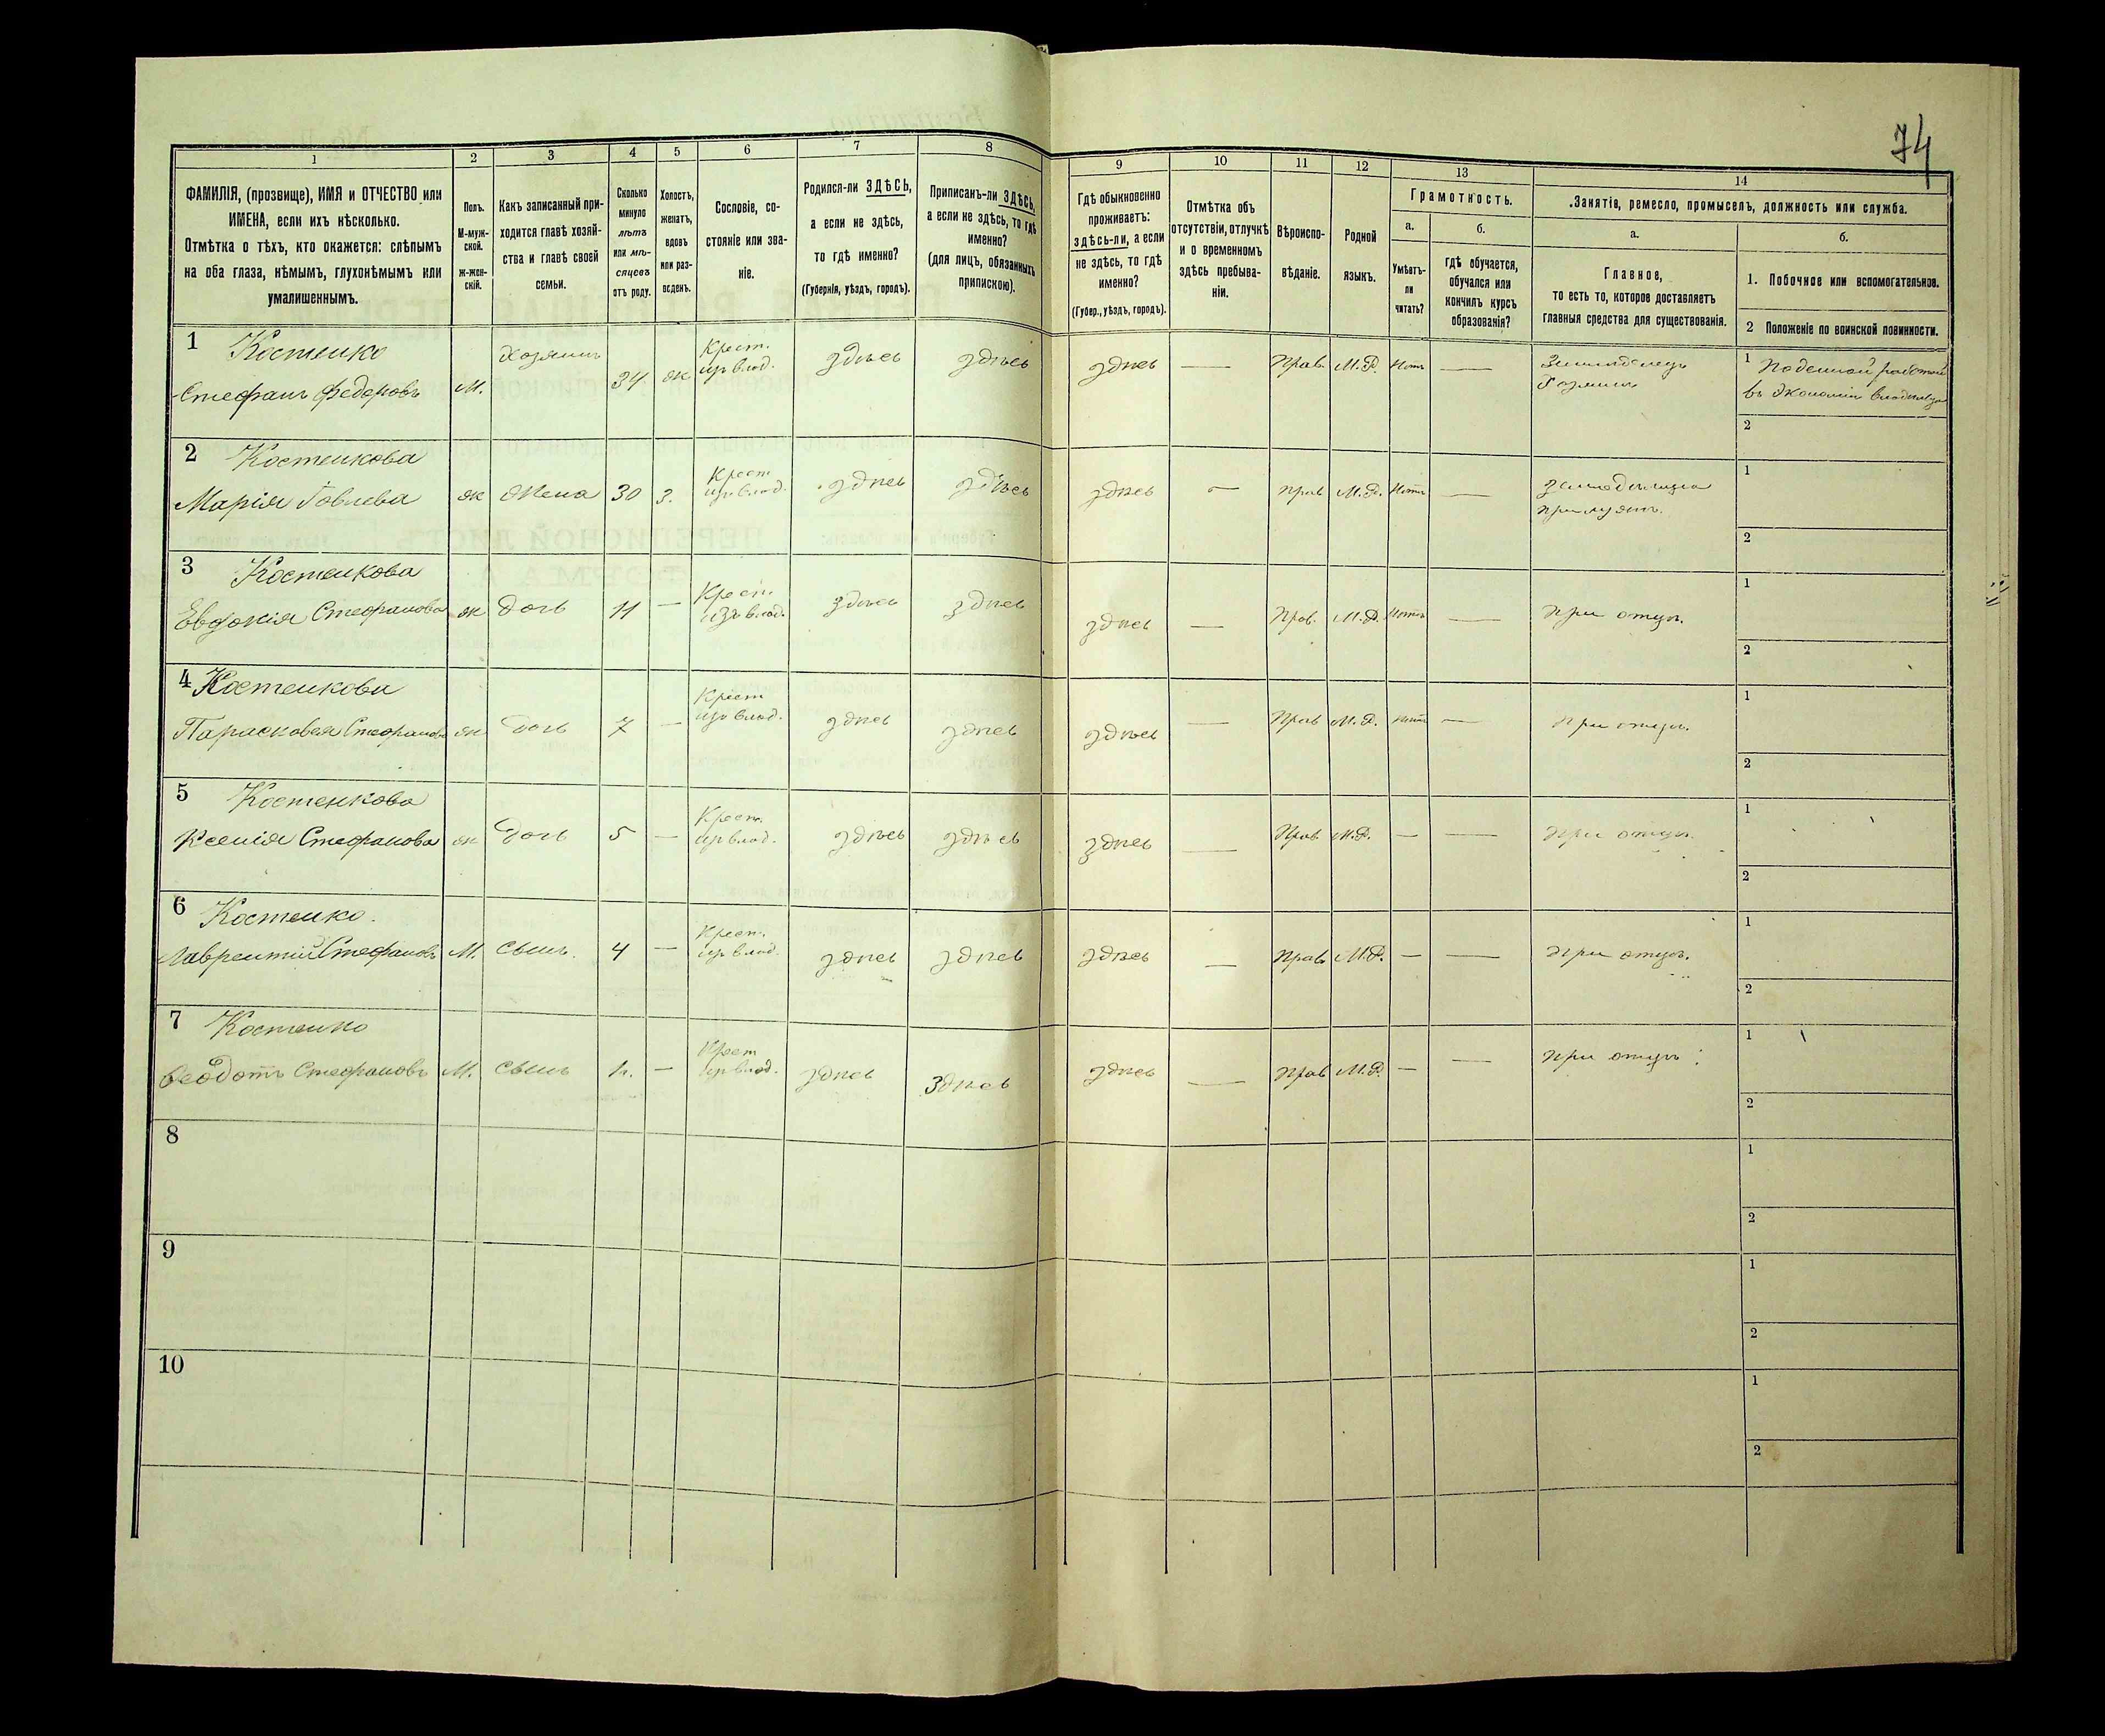 74
1
2
3
4
5
6
7
8
9
10
11
12
13
14
ФАМИЛІЯ, (прозвище), ИМЯ и ОТЧЕСТВО или
ИМЕНА, если ихъ нѣсколько.
Отмѣтка о тѣхъ, кто окажется: слѣпымъ
на оба глаза, нѣмымъ, глухонѣмымъ или
умалишеннымъ.
Полъ.
М-муж-
ской.
ж-жен-
скій.
Какъ записанный при-
ходится главѣ хозяй-
ства и главѣ своей
семьи.
Сколько
минуло
лѣтъ
или мѣ-
сяцевъ
отъ роду.
Холостъ,
женатъ,
вдовъ
или раз-
веденъ.
Сословіе, со-
стояніе или зва-
ніе.
Родился-ли ЗДѢСЬ,
а если не здѣсь,
то гдѣ именно?
(Губернія, уѣздъ, городъ).
Приписанъ-ли ЗДѢСЬ,
а если не здѣсь, то гдѣ
именно?
(для лицъ, обязанныхъ
припискою).
Гдѣ обыкновенно
проживаетъ:
здѣсь-ли, а если
не здѣсь, то гдѣ
именно?
(Губер., уѣздъ, городъ).
Отмѣтка объ
отсутствіи, отлучкѣ
и о временномъ
здѣсь пребыва-
ніи.
Вѣроиспо-
вѣданіе.
Родной
языкъ.
Грамотность.
а.
Умѣетъ-
ли
читать?
б.
гдѣ обучается,
обучался или
кончилъ курсъ
образованія?
Занятія, ремесло, промыселъ, должность или служба.
а.
Главное,
то есть то, которое доставляетъ
главныя средства для существованія.
б.
1. Побочное или вспомогательное.
2 Положеніе по воинской повинности.
1 Костенко
Стефанъ Федоровъ М. Хозяинъ 34 ж Крест. изъ влад. здѣсь здѣсь здѣсь — Прав. М.Р. Нѣтъ — Земледѣлецъ
Хозяинъ
1 Поденной работой
въ Экономіи владѣльца
2
2 Костенкова
Марія Іовлева ж Жена 30 З. Крест изъ влад. здѣсь здѣсь здѣсь — Прав М.Р. Нѣтъ —
при мужѣ.
1
2
3 Костенкова
Евдокія Стефанова ж Дочь 11 — Крест. изъ влад. здѣсь здѣсь здѣсь — Прав. М.Р. Нѣтъ — при отцѣ.
1
2
4 Костенкова
Парасковея Стефанова ж Дочь 7 — Крест изъ влад. здѣсь здѣсь здѣсь — Прав М.Р. Нѣтъ — при отцѣ.
1
2
5 Костенкова
Ксенія Стефанова ж Дочь 5 — Крест. изъ влад. здѣсь здѣсь здѣсь — Прав М.Р. — — при отцѣ.
1
2
6 Костенко.
Лаврентій Стефановъ М. Сынъ. 4 — Крест. изъ влад. здѣсь здѣсь здѣсь — Прав М.Р. — — при отцѣ.
1
2
7 Костенко
Ѳеодотъ Стефановъ М. Сынъ — Крест изъ влад. здѣсь здѣсь здѣсь — Прав М.Р. — — при отцѣ
1
2
8
1
2
9
1
2
10
1
2